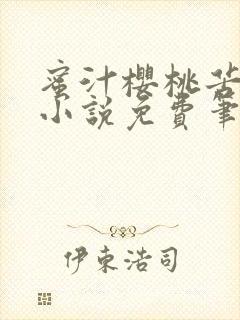 蜜汁櫻桃苦
小說免費筆
伊東浩司